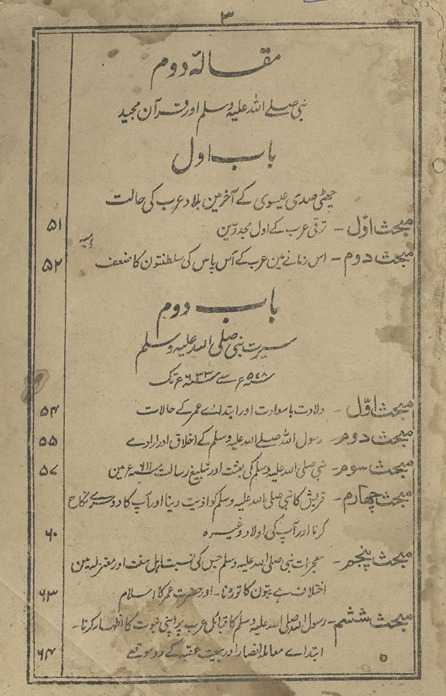 ۳
مقالۂ دوم
نبی صلے اللہ علیہ وسلم اور قرآن مجید
باب اول
چھٹی صدی عیسوی کے آخر مین بلاد عرب کی حالت
مبحث اوّل - ترقی عرب کے اول مجددین ۵۱
مبحث دوم - اس زمانے مین عرب کے آس پاس کی سلطنتون کا ضعف ۵۲
باب دوم
سیرت نبی صلی اللہ علیہ وسلم
۵۷۸ء سے ۶۳۳ء تک
مبحث اوّل - ولادت باسعادت اور ابتداے عمر کے حالات ۵۴
مبحث دوم - رسول اللہ صلے اللہ علیہ وسلم کے اخلاق اور ارادے ۵۵
مبحث سوم - نبی صلی اللہ علیہ وسلم کی بعثت اور تبلیغ رسالت ۶۱۱ء مین ۵۷
مبحث چہارم - قریش کا نبی صلی اللہ علیہ وسلم کو اذیت دینا اور آپ کا دوسرے نکاح
کرنا اور آپ کی اولاد وغیرہ ۶۰
مبحث پنجم - معجزات نبی صلی اللہ علیہ وسلم جس کی نسبت اہل سنت اور معتزلہ مین
اختلاف ہے بتون کا توڑنا - اور حضرت عمر کا اسلام ۶۳
مبحث ششم - رسول اللہ صلی اللہ علیہ وسلم کا قبائل عرب پر اپنی نبوت کا اظہار کرنا -
ابتداے معاملۂ انصار اور بیعت عقبہ کے دو موقعے ۶۴